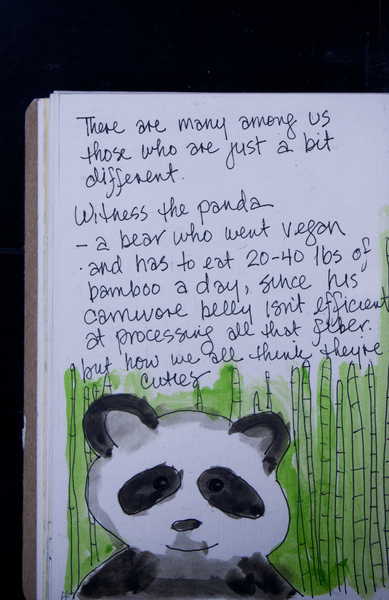 There are many among us
those who are just a bit
different.
Witness the panda
- a bear who went vegan
and has to eat 20-40 lbs of
bamboo a day, since his
carnivore belly isn't efficient
at processing all that fiber.
but how we all think they're
cuties